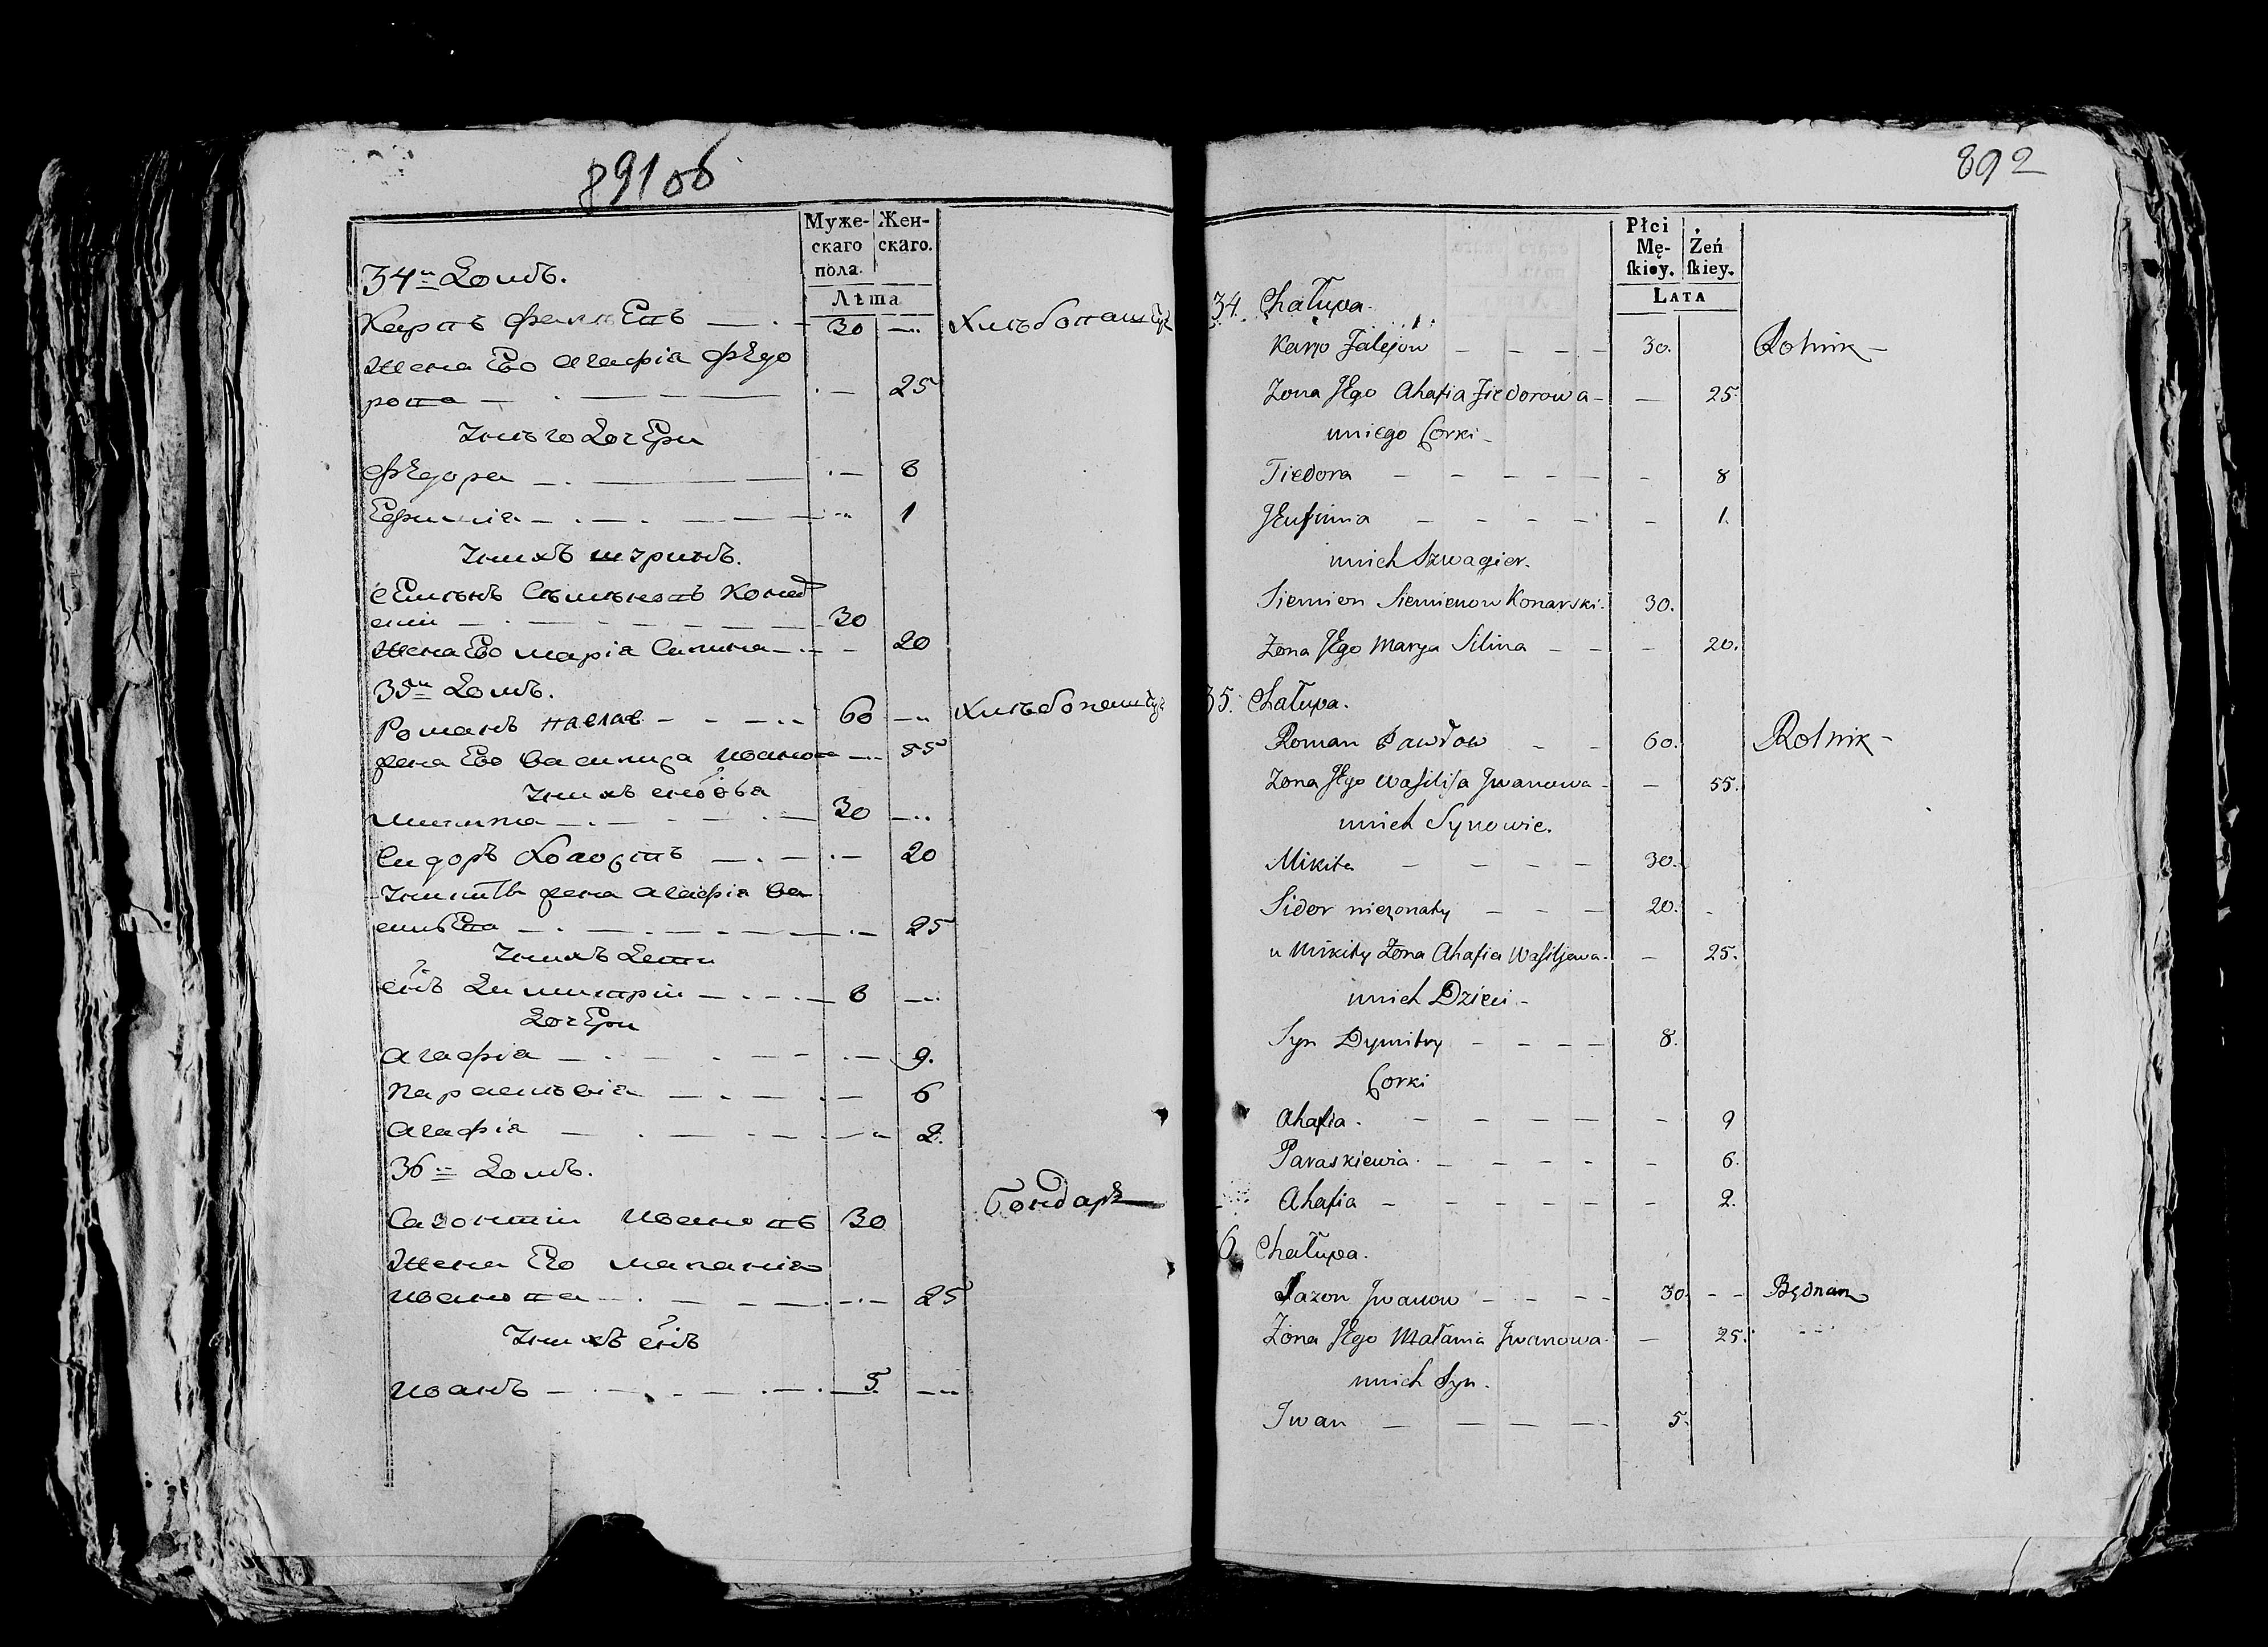 891 об
Муже- Жен-
скаго скаго.
пола.
Лѣта
34й Домъ.
Карпъ 30 Хлѣбопашец
Жена Ево Агафіа Фѣдо
рова 25
У него Дочери
Фѣдора 8
Ефимиа 1
У нихъ шуринъ.
Семѣнъ Сѣмѣновъ
30
Жена Ево Маріа Силина 20
35й Домъ.
Романъ Павлов 60 Хлѣбопашец
жена Ево Василиса Иванова 55
У нихъ сновья
Микита 30
Сидоръ Холостъ 20
жена Агафіа Ва
сильева 25
У нихъ Дети
снъ Димитрій 8
Дочери
Агафіа 9.
Парасковіа 6
Агафіа 2.
36й Домъ.
Бондарь
Сазонтій Ивановъ 30
Жена Его Маланіа
Иванова 25
У нихъ снъ
Иванъ 5
892
Płci
Mę- Żeń
ſkiey. ſkiey.
LATA
34. Chałupa.
Karp Falejow 30. Rolnik
Zona Jego Ahafia Fiedorowa 25.
u niego Corki
Fiedora 8
Jeufimia 1.
u nich Szwagier.
Siemien Siemienow Konarski 30.
Zona Jego Marya Silina 20.
35. Chałupa.
Roman Pawłow 60. Rolnik
Zona Jego Waſiliſa Jwanowa 55.
u nich Synowie.
Mikita 30.
Sidor nieżonaty 20.
u Mikity Żona Ahafia Waſiljewa 25.
u nich Dzieci
Syn Dymitry 8.
Corki
Ahafia. 9
Paraskiewia. 6.
Ahafia 2.
6. Chałupa.
Sazon Jwanow 30. Będnarz
Żona Jego Małania Jwanowa 25.
u nich Syn.
Jwan 5.